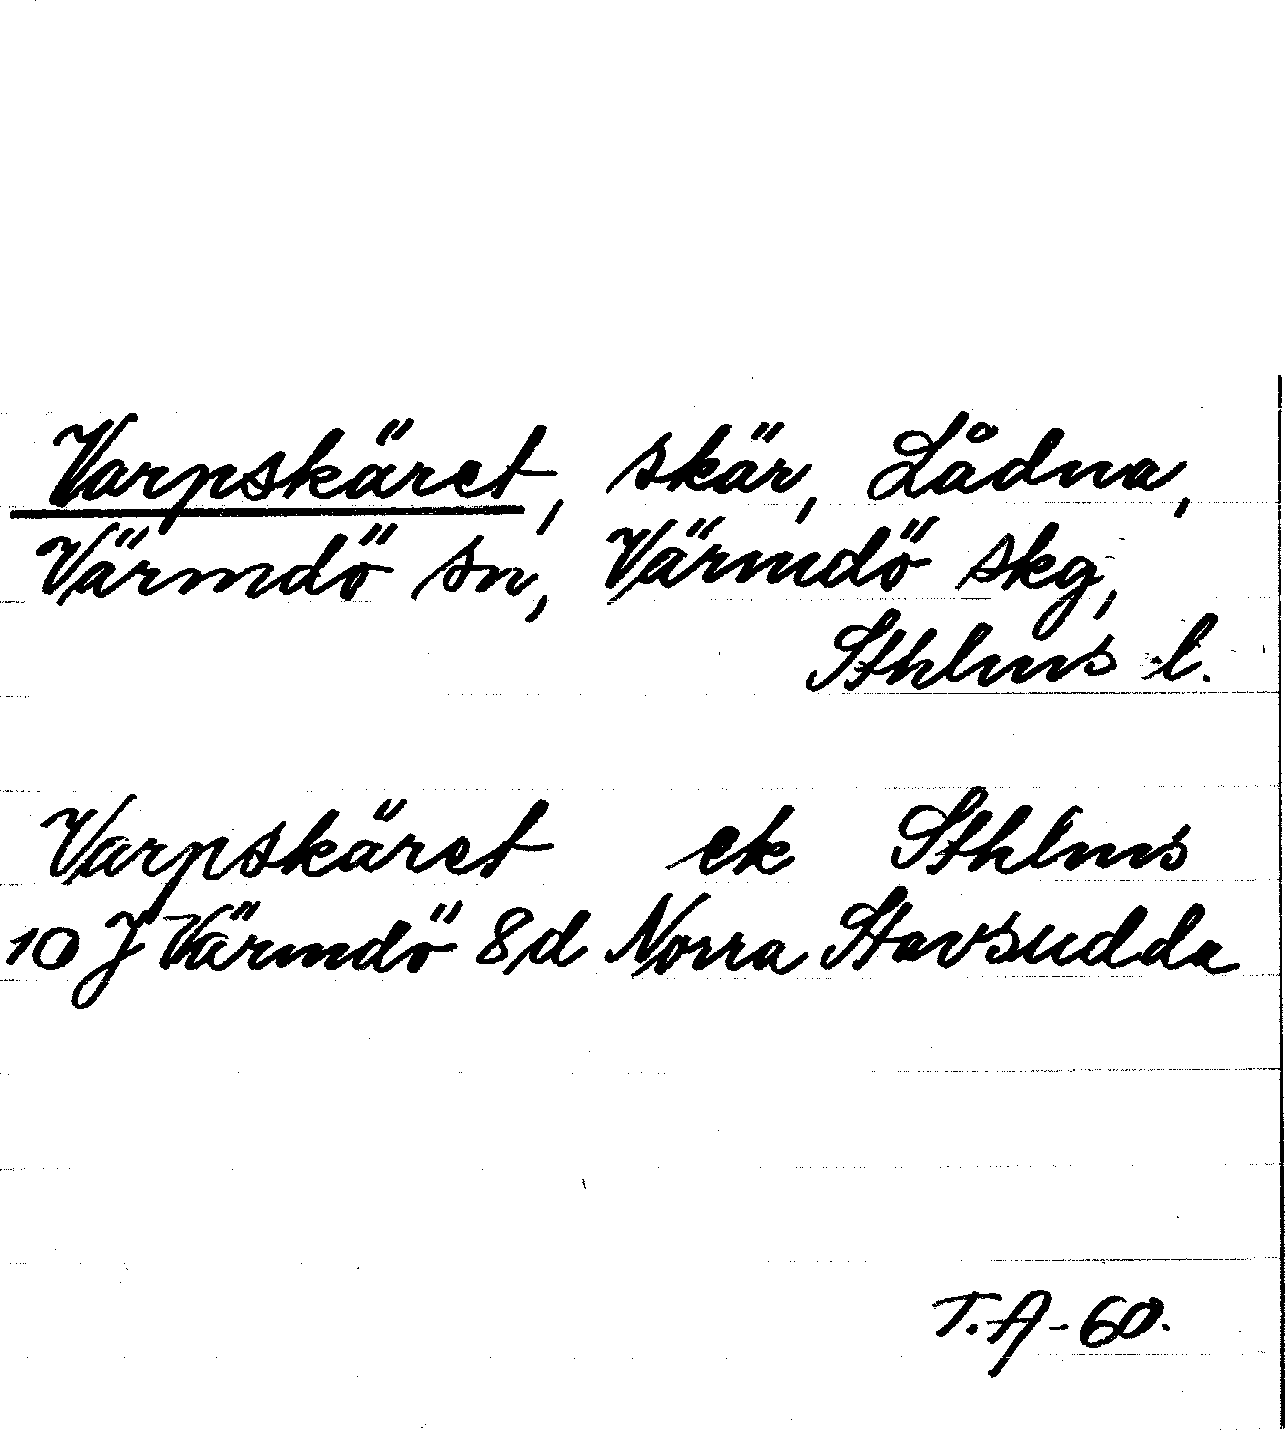 Varpskäret, skär, Lådna,
Värmdö sn, Värmdö skg,
Sthlms l.
Varpskäret ek Sthlms
10 J Värmdö 8d Norra Stavsudda
T.A-60.